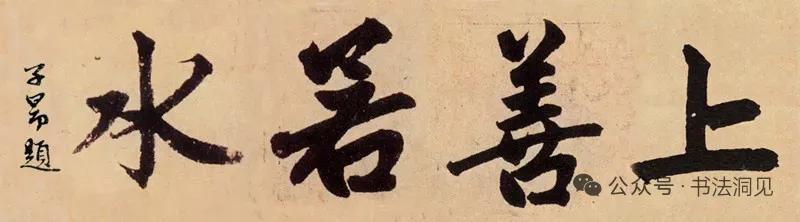 上善若水
子昂題
公众号·书法洞见